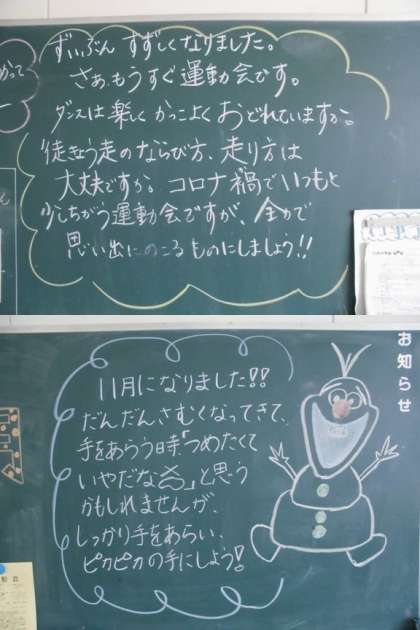 ずいぶん すずしくなりました。
さあ、もうすぐ運動会です。
ダンスは楽しくかっこよくおどれていますか。
徒きょう走のならび方、走り方は
大丈夫ですか。コロナ禍でいつもと
少しちがう運動会ですが、全力で
思い出にのこるものにしましょう!!
お知らせ
11月になりました!!
だんだんさむくなってきて、
手をあらう時「つめたくて
いやだな」と思う
かもしれませんが、
しっかり手をあらい、
ピカピカの手にしよう!